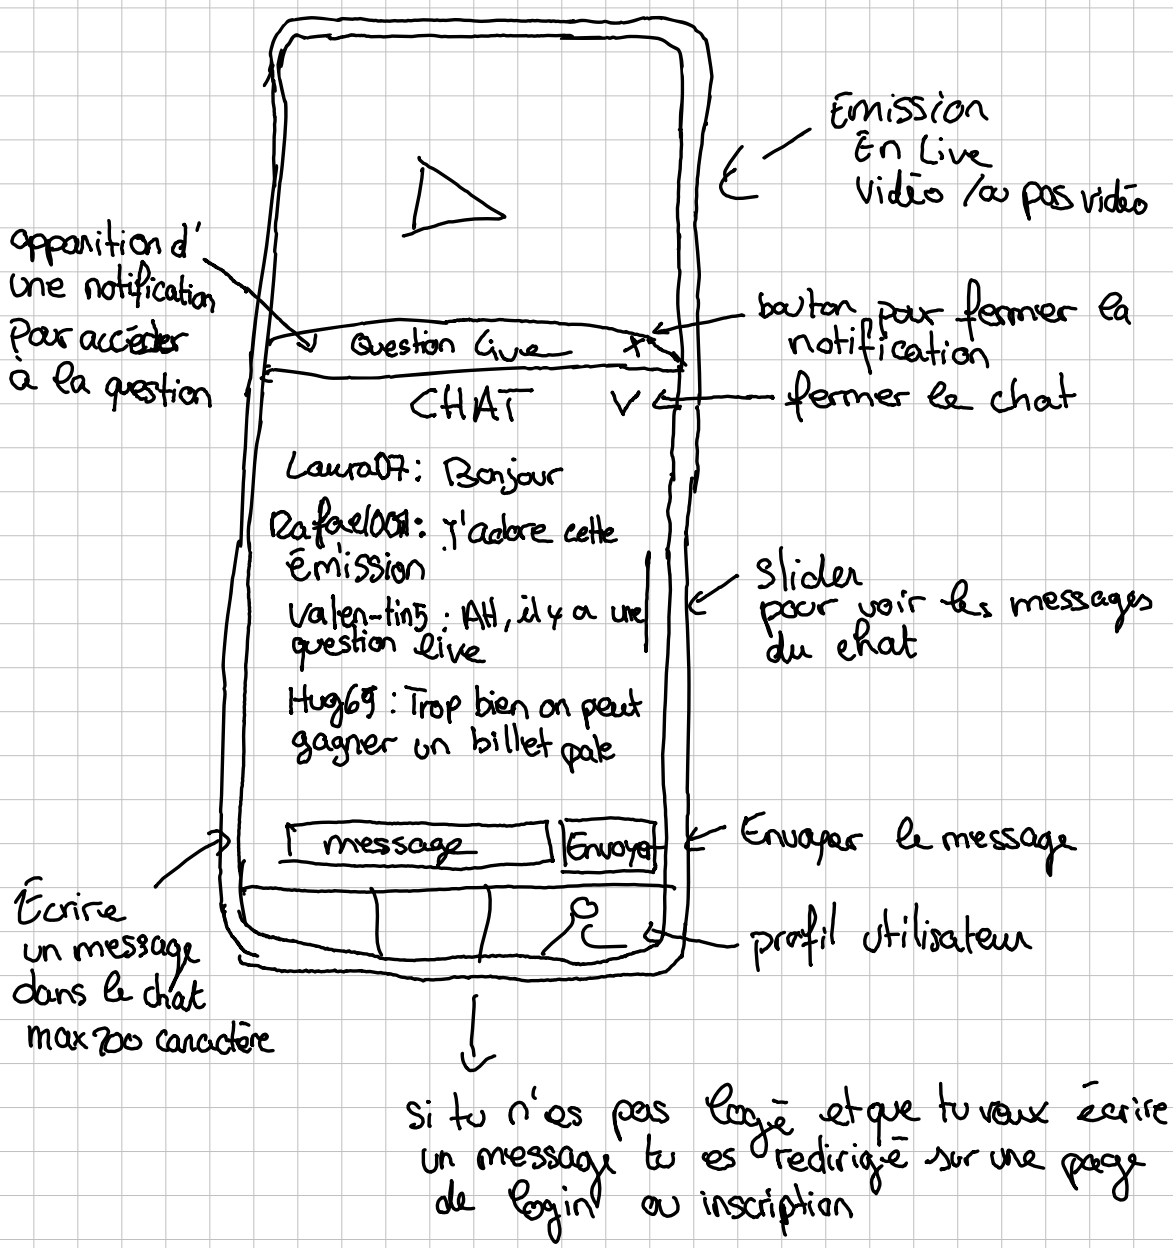 Émission
En Live
vidéo / ou pas vidéo
apparition d'
une notification
pour accéder
à la question
bouton pour fermer la
notification
Question Live x
CHAT V
fermer le chat
Laura07: Bonjour
Rafael001: j'adore cette
émission
Valen-tin5 : AH, il y a une
question live
Hug69 : Trop bien on peut
gagner un billet pale
Slider
pour voir les messages
du chat
message
Envoyer
Envoyer le message
profil utilisateur
Écrire
un message
dans le chat
max 200 caractère
si tu n'es pas logé et que tu veux écrire
un message tu es redirigé sur une page
de login ou inscription